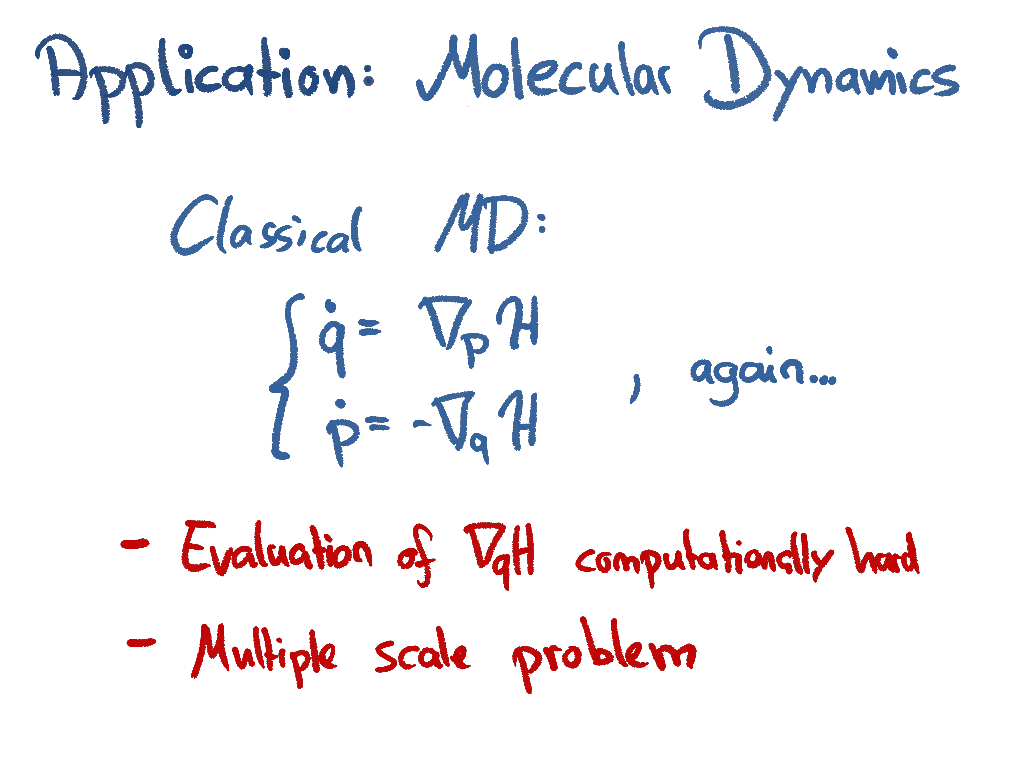 Application: Molecular Dynamics
Classical MD:
{ q̇ = ∇ₚH
, again...
ṗ = -∇_q H
- Evaluation of ∇_q H computationally hard
- Multiple scale problem